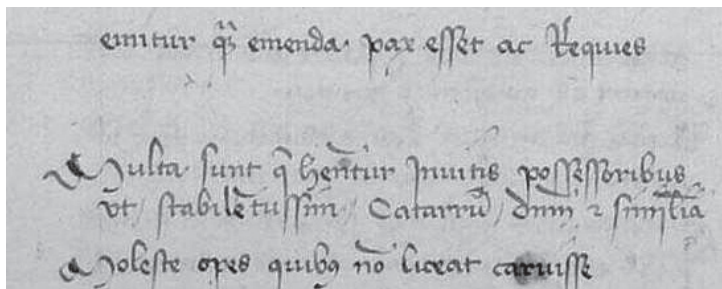 emitur qm̄ emenda. pax esset ac Requies
Multa sunt q̄ hent̄ur Inuitis possessoribus
vt / stabilem tussim / Catarrū / dnm̄ ⁊ similia
Moleste opes quibꝫ nō liceat caruisse